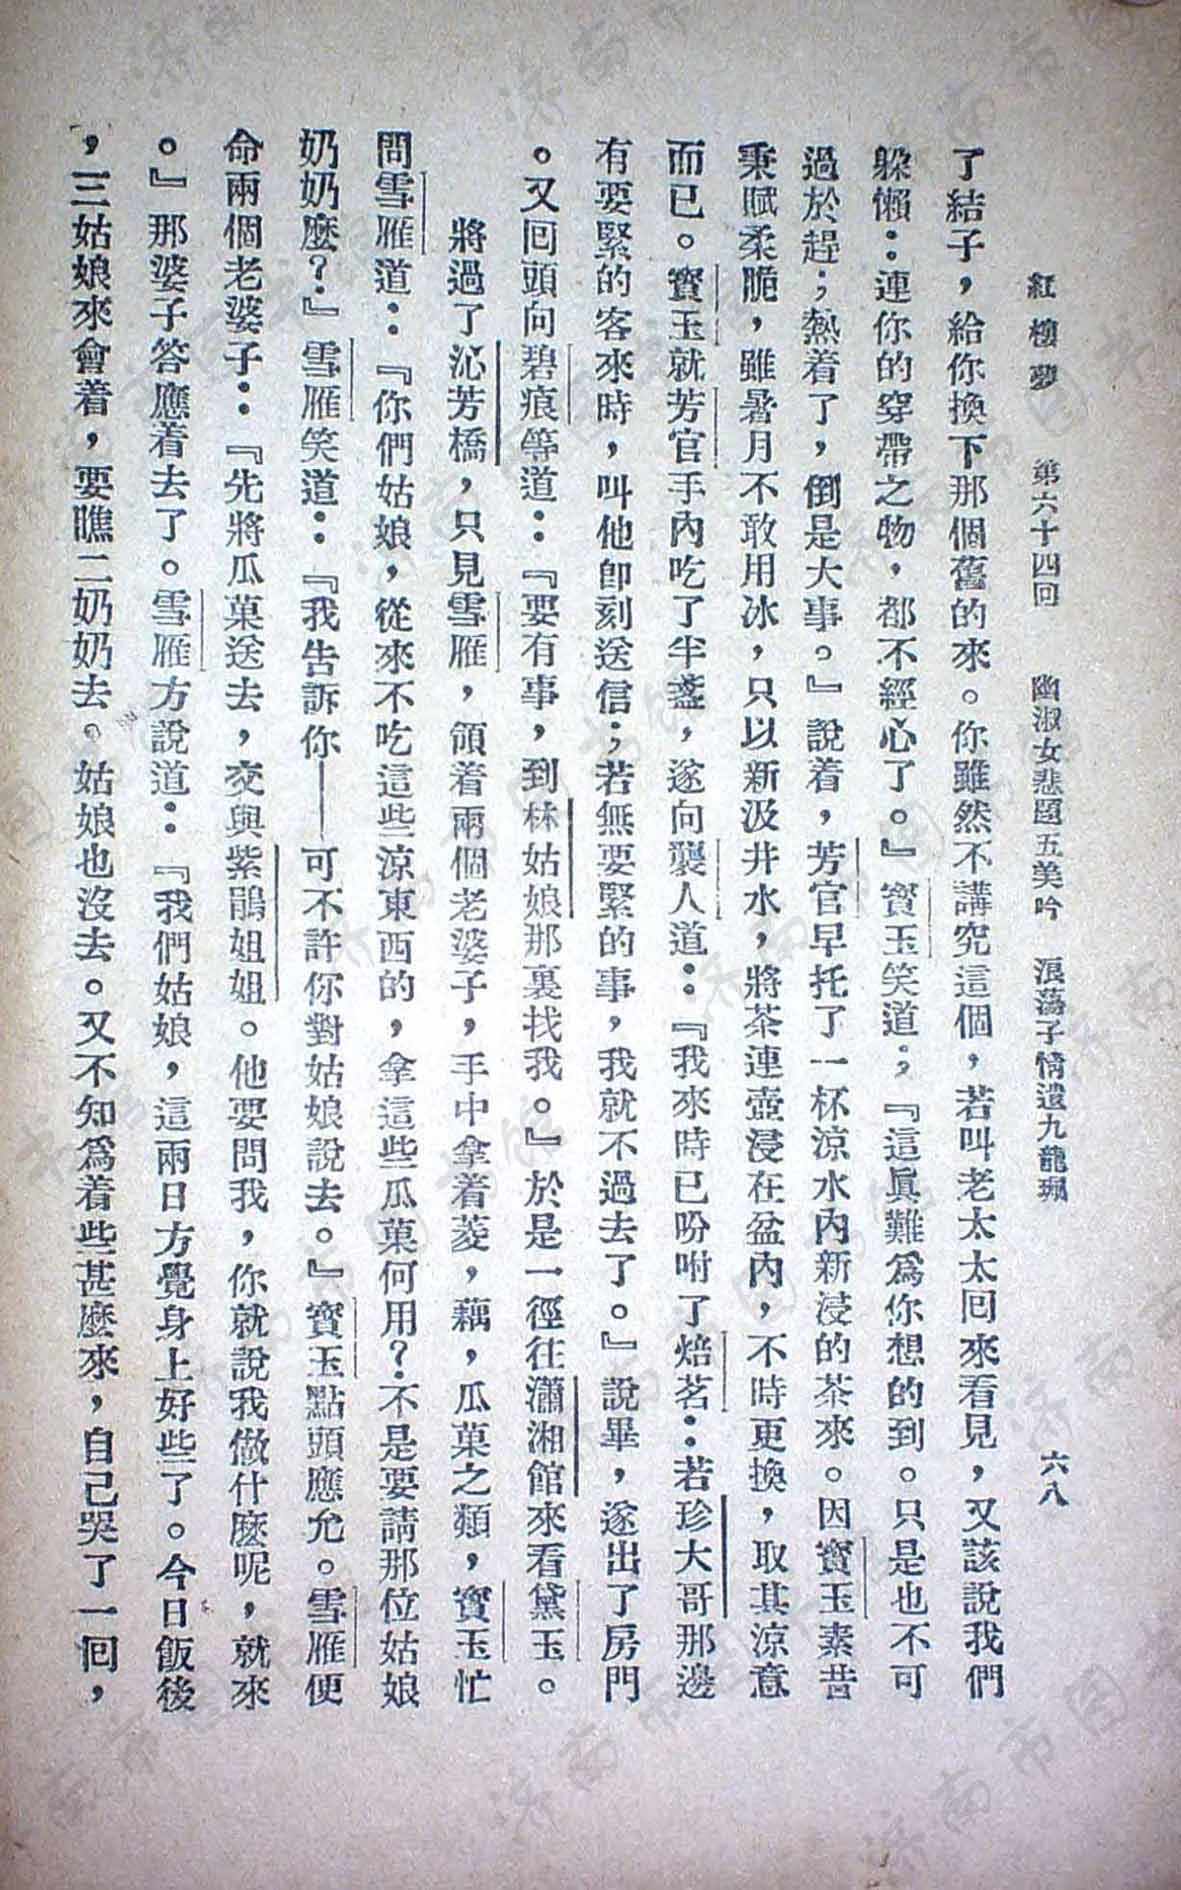 紅樓夢　第六十四回　幽淑女悲題五美吟　浪蕩子情遺九龍珮　六八
了結子，給你換下那個舊的來。你雖然不講究這個，若叫老太太回來看見，又該說我們
躱懶：連你的穿帶之物，都不經心了。』寶玉笑道：『這眞難爲你想的到。只是也不可
過於趕；熱着了，倒是大事。』說着，芳官早托了一杯涼水內新浸的茶來。因寶玉素昔
秉賦柔脆，雖暑月不敢用冰，只以新汲井水，將茶連壺浸在盆內，不時更換，取其涼意
而已。寶玉就芳官手內吃了半盞，遂向襲人道：『我來時已吩咐了焙茗：若珍大哥那邊
有要緊的客來時，叫他卽刻送信；若無要緊的事，我就不過去了。』說畢，遂出了房門
。又回頭向碧痕等道：『要有事，到林姑娘那裏找我。』於是一徑往瀟湘館來看黛玉。
將過了沁芳橋，只見雪雁，領着兩個老婆子，手中拿着菱，藕，瓜菓之類，寶玉忙
問雪雁道：『你們姑娘，從來不吃這些涼東西的，拿這些瓜菓何用？不是要請那位姑娘
奶奶麼？』雪雁笑道：『我告訴你——可不許你對姑娘說去。』寶玉點頭應允。雪雁便
命兩個老婆子：『先將瓜菓送去，交與紫鵑姐姐。他要問我，你就說我做什麼呢，就來
。』那婆子答應着去了。雪雁方說道：『我們姑娘，這兩日方覺身上好些了。今日飯後
，三姑娘來會着，要瞧二奶奶去。姑娘也沒去。又不知爲着些甚麼來，自己哭了一回，
济南市图书馆